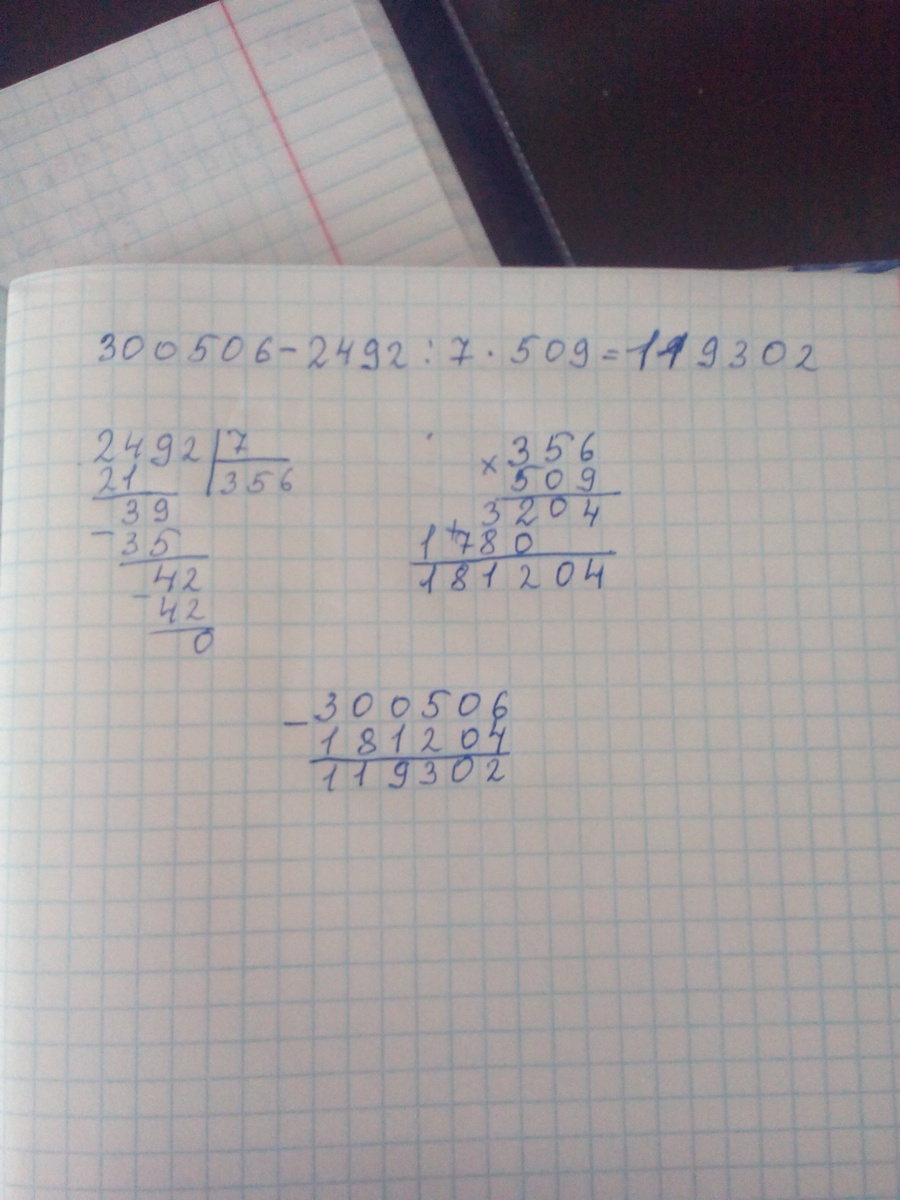 300506-2492:7·509=119302
2492 7
21 356
39
- 35
42
- 42
0
× 356
509
3204
+ 1780
181204
- 300506
181204
119302